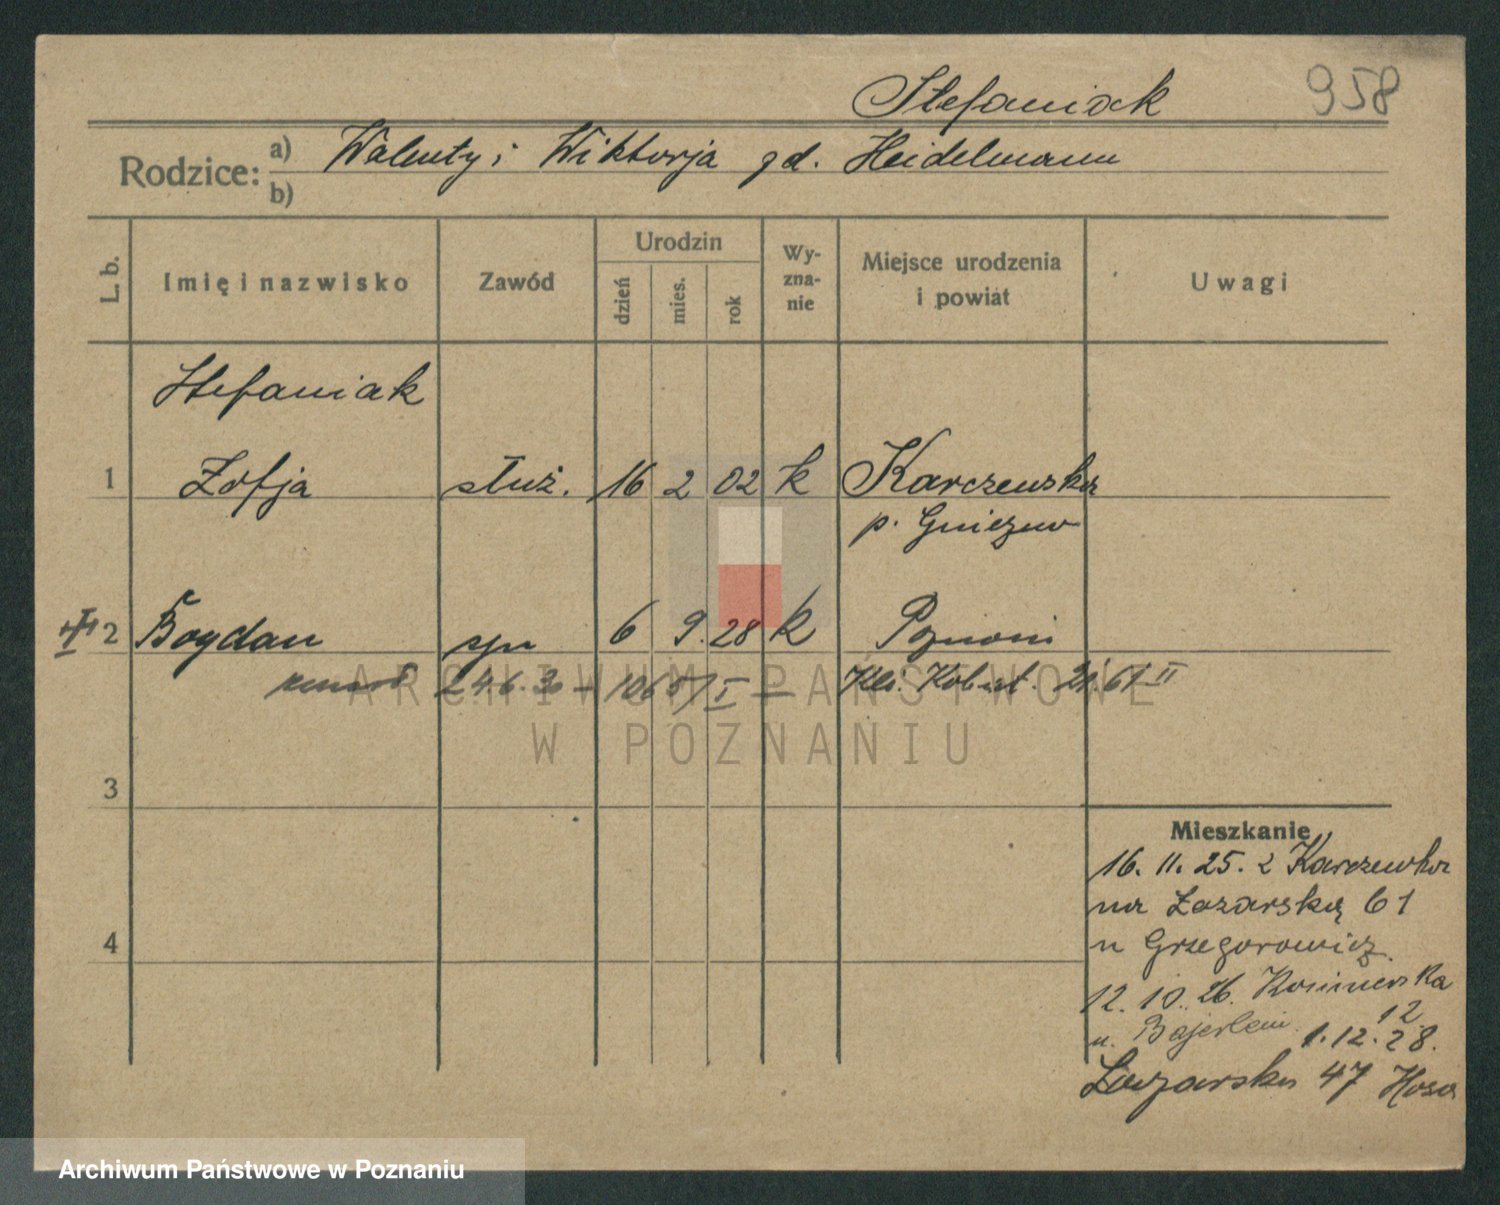 Stefaniak
958
Rodzice:
a) Walenty i Wiktorja zd. Heidelmann
b)
L. b.
Imię i nazwisko
Zawód
Urodzin
dzień
mies.
rok
Wy-
zna-
nie
Miejsce urodzenia
i powiat
Uwagi
Stefaniak
1 Zofja służ. 16 2 02 k Karczewska
p. Gniezno
2 Bogdan syn 6 9. 28 k Poznani
zmarł 24.6.30 - I - Kl. Kobiet.
3
4
Mieszkanie
16. 11. 25. z Karczewka
na Łazarską 61
u Grzegorowicz.
12. 10. 26.
12
u. Bajerlein 1.12.28.
Łazarska 47
ARCHIWUM PAŃSTWOWE
W POZNANIU
Archiwum Państwowe w Poznaniu